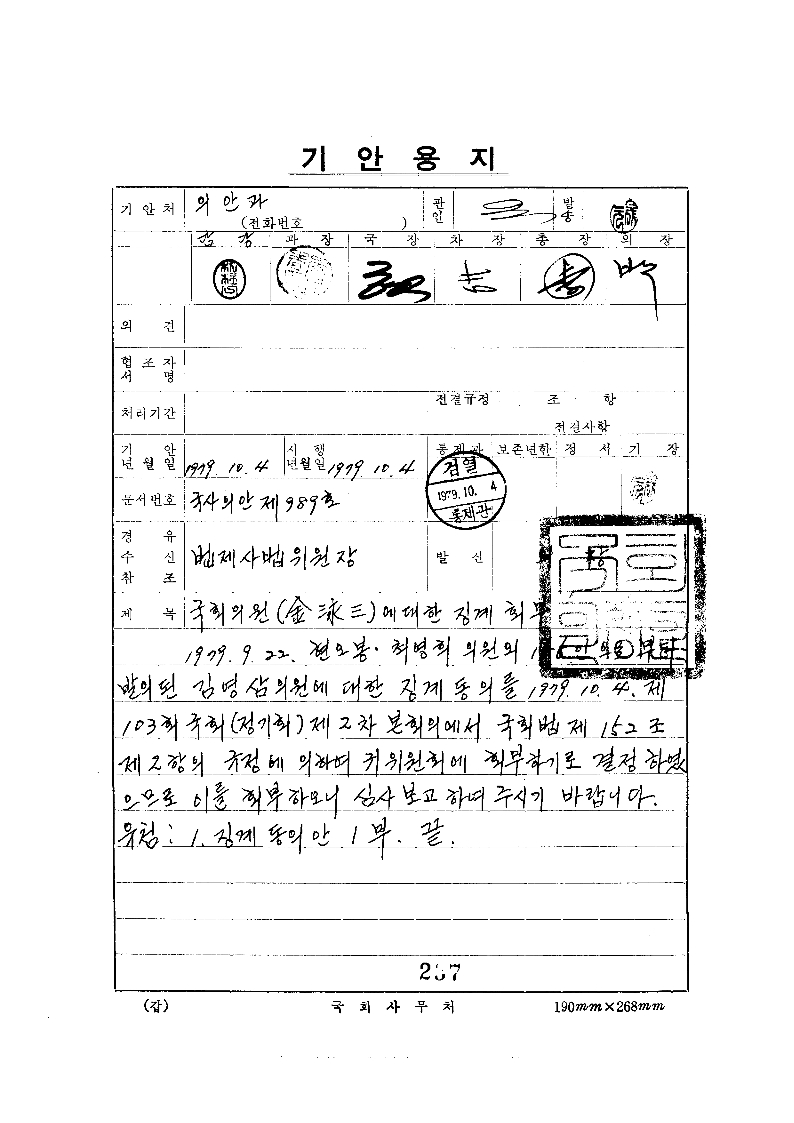 기 안 용 지
기 안 처 의 안 과 관인 발송
(전화번호 )
과 장 국 장 차 장 총 장 의 장
의 건
협 조 자
서 명
처리기간 전결규정 조 항
전결사항
기 안 시 행 통제관 보존년한 정 서 기 장
년 월 일 1979. 10. 4 년월일 1979. 10. 4
검열
1979. 10. 4
통제관
문서번호 국사의안 제 989호
경 유
수 신 법제사법위원장 발 신
참 조
제 목 국회의원(金泳三)에대한 징계 회부
1979. 9. 22. 현오봉·최영희 의원외
발의된 김영삼의원에 대한 징계동의를 1979. 10. 4. 제
103회 국회(정기회) 제 2차 본회의에서 국회법 제 152 조
제 2항의 규정에 의하여 귀위원회에 회부하기로 결정 하였
으므로 이를 회부하오니 심사 보고 하여 주시기 바랍니다.
유첨 : 1. 징계 동의안 1 부. 끝.
(갑) 국 회 사 무 처 190mm×268mm